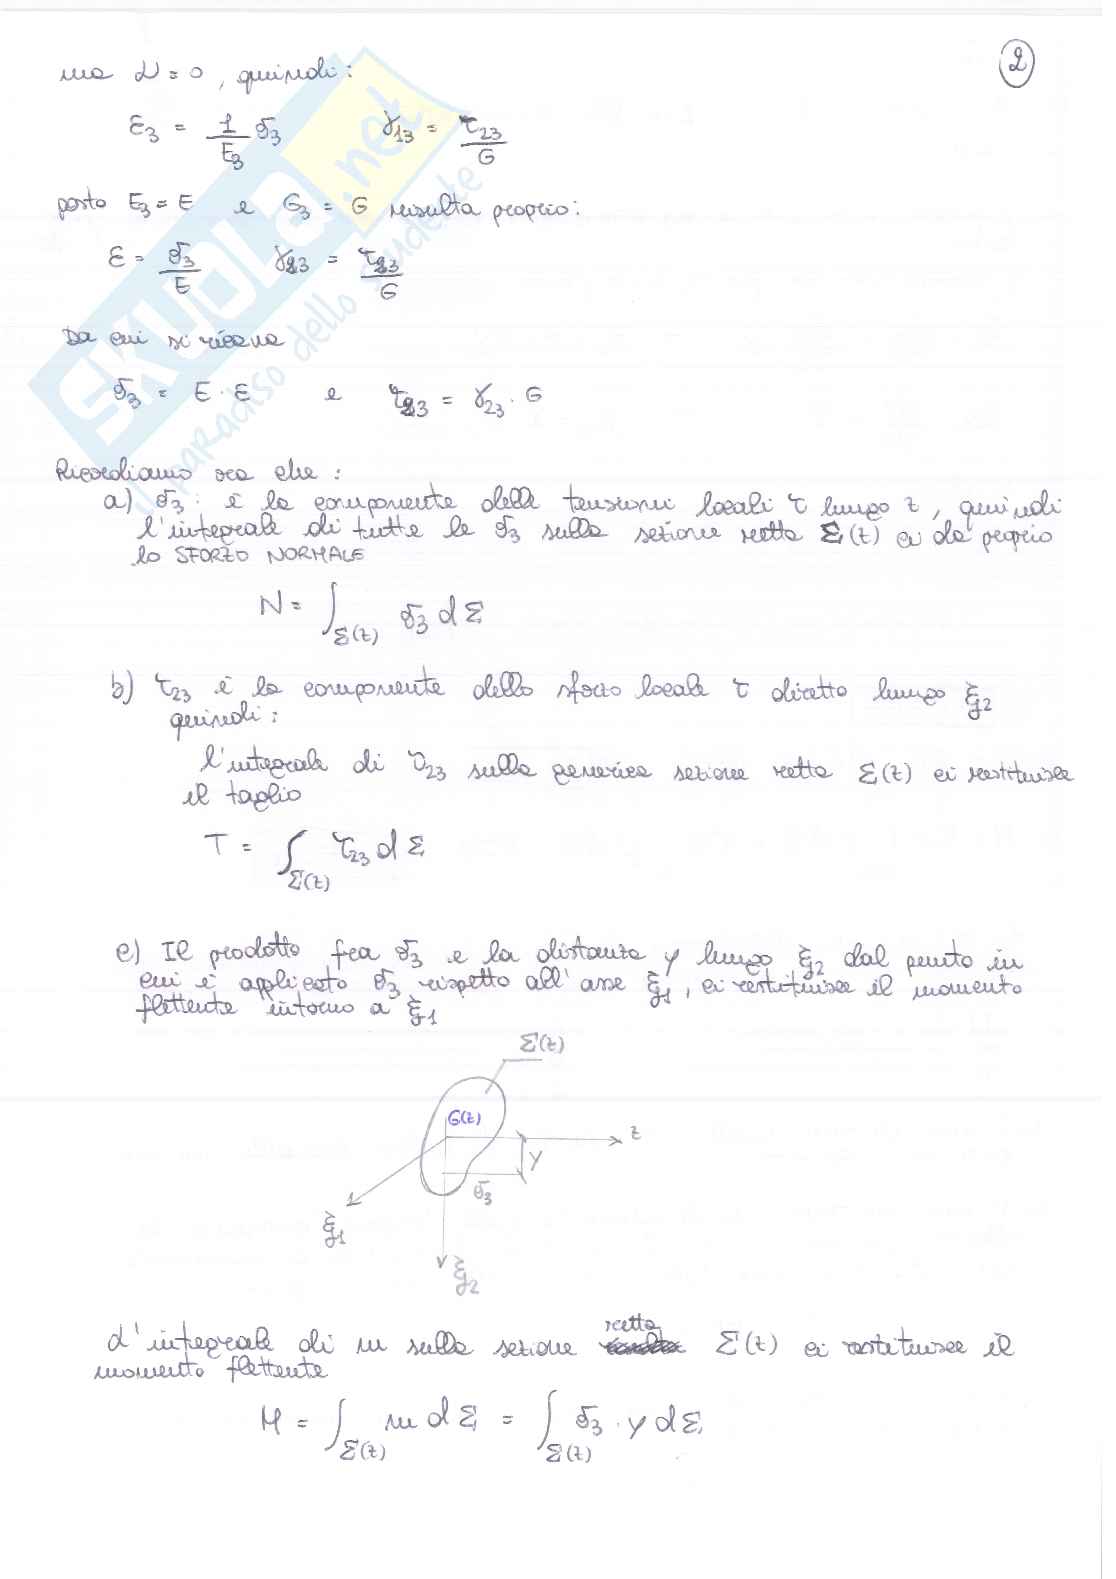 2
ma ν = 0, quindi:
ε3 = 1/E3 σ3    γ13 = τ23/G
posto E3 = E e G3 = G risulta proprio:
ε = σ3/E    γ23 = τ23/G
Da cui si ricava
σ3 = E · ε e τ23 = γ23 · G
Ricordiamo ora che:
a) σ3: è la componente delle tensioni locali τ lungo z, quindi
l'integrale di tutte le σ3 sulla sezione retta Σ(z) ci da proprio
lo SFORZO NORMALE
N = ∫Σ(z) σ3 dΣ
b) τ23 è la componente dello sforzo locale τ diretto lungo ξ2
quindi:
l'integrale di τ23 sulla generica sezione retta Σ(z) ci restituisce
il taglio
T = ∫Σ(z) τ23 dΣ
c) Il prodotto fra σ3 e la distanza y lungo ξ2 dal punto in
cui è applicato σ3 rispetto all'asse ξ1, ci restituisce il momento
flettente intorno a ξ1
Σ(z)
G(z)
z
y
σ3
ξ1
ξ2
L'integrale di m sulla sezione retta Σ(z) ci restituisce il
momento flettente
M = ∫Σ(z) m dΣ = ∫Σ(z) σ3 · y dΣ
SKUOLA.net
il paradiso dello studente